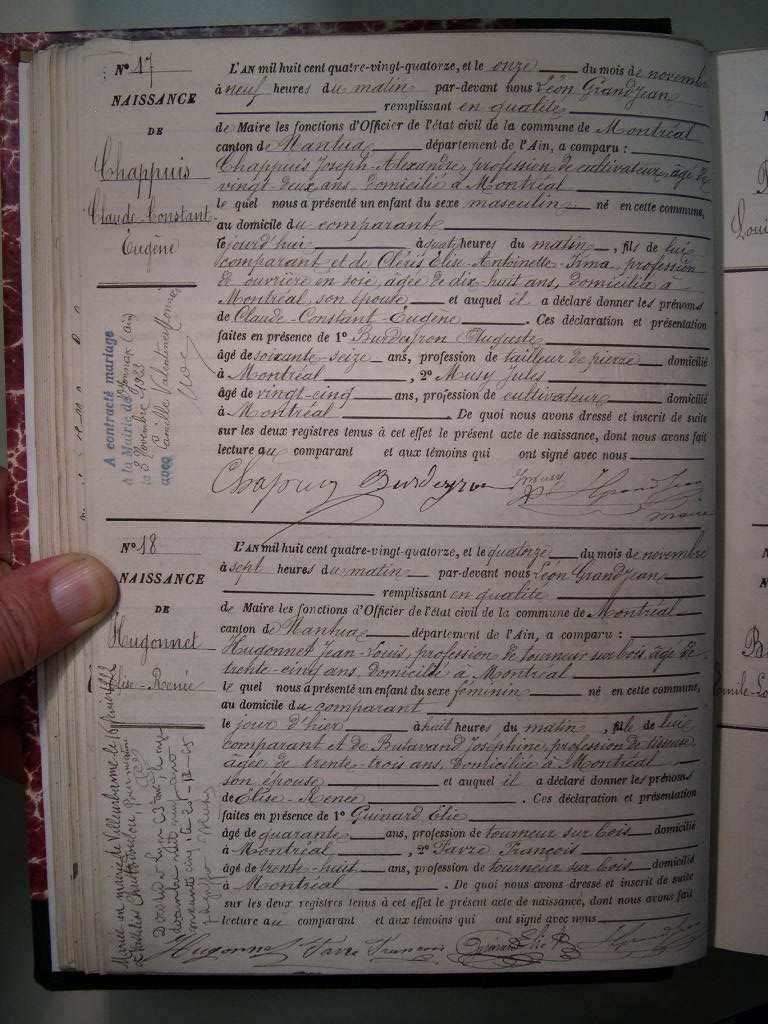 N° 17
NAISSANCE
DE
Chappuis
Claude-Constant-
Eugène
A contracté mariage
à la Mairie d'Oyonnax (Ain)
le 8 Novembre 1923
avec Camille Valentine
L'AN mil huit cent quatre-vingt-quatorze, et le onze du mois de novembre
à neuf heures du matin par-devant nous Léon Grandjean
remplissant en qualité
de Maire les fonctions d'Officier de l'état civil de la commune de Montréal
canton de Nantua département de l'Ain, a comparu :
Chappuis Joseph-Alexandre, profession de cultivateur, âgé de
vingt-deux ans, domicilié à Montréal
le quel nous a présenté un enfant du sexe masculin né en cette commune,
au domicile du comparant
le jourd'hui à sept heures du matin, fils de lui
comparant et de Elise-Antoinette-Irma, profession
de ouvrière en soie, âgée de dix-huit ans, domicilia à
Montréal, son épouse et auquel il a déclaré donner les prénoms
de Claude-Constant-Eugène. Ces déclaration et présentation
faites en présence de 1° Burdeyron Auguste
âgé de soixante-seize ans, profession de tailleur de pierre domicilié
à Montréal, 2° Musy Jules
âgé de vingt-cinq ans, profession de cultivateur domicilié
à Montréal. De quoi nous avons dressé et inscrit de suite
sur les deux registres tenus à cet effet le présent acte de naissance, dont nous avons fait
lecture au comparant et aux témoins qui ont signé avec nous
Chapuis Burdeyron J musy Grandjean
maire
N° 18
NAISSANCE
DE
Hugonnet
Elise-Renée
Mariée en mairie de Villeurbanne le 16 1922
Décédée à Lyon
décembre mil neuf cent
L'AN mil huit cent quatre-vingt-quatorze, et le quatorze du mois de novembre
à sept heures du matin par-devant nous Léon Grandjean
remplissant en qualité
de Maire les fonctions d'Officier de l'état civil de la commune de Montréal
canton de Nantua département de l'Ain, a comparu :
Hugonnet Jean-Louis, profession de tourneur sur bois âgé de
trente-cinq ans, domicilié à Montréal
le quel nous a présenté un enfant du sexe féminin né en cette commune,
au domicile du comparant
le jour d'hier à huit heures du matin, fille de lui
comparant et de Butavand Joséphine, profession de tisseuse
âgée de trente-trois ans, domiciliée à Montréal
son épouse et auquel il a déclaré donner les prénoms
de Elise-Renée. Ces déclaration et présentation
faites en présence de 1° Guinard Elie
âgé de quarante ans, profession de tourneur sur bois domicilié
à Montréal, 2° Favre François
âgé de trente-huit ans, profession de tourneur sur bois domicilié
à Montréal. De quoi nous avons dressé et inscrit de suite
sur les deux registres tenus à cet effet le présent acte de naissance, dont nous avons fait
lecture au comparant et aux témoins qui ont signé avec nous
Hugonnet Favre François Guinard Elie Grandjean